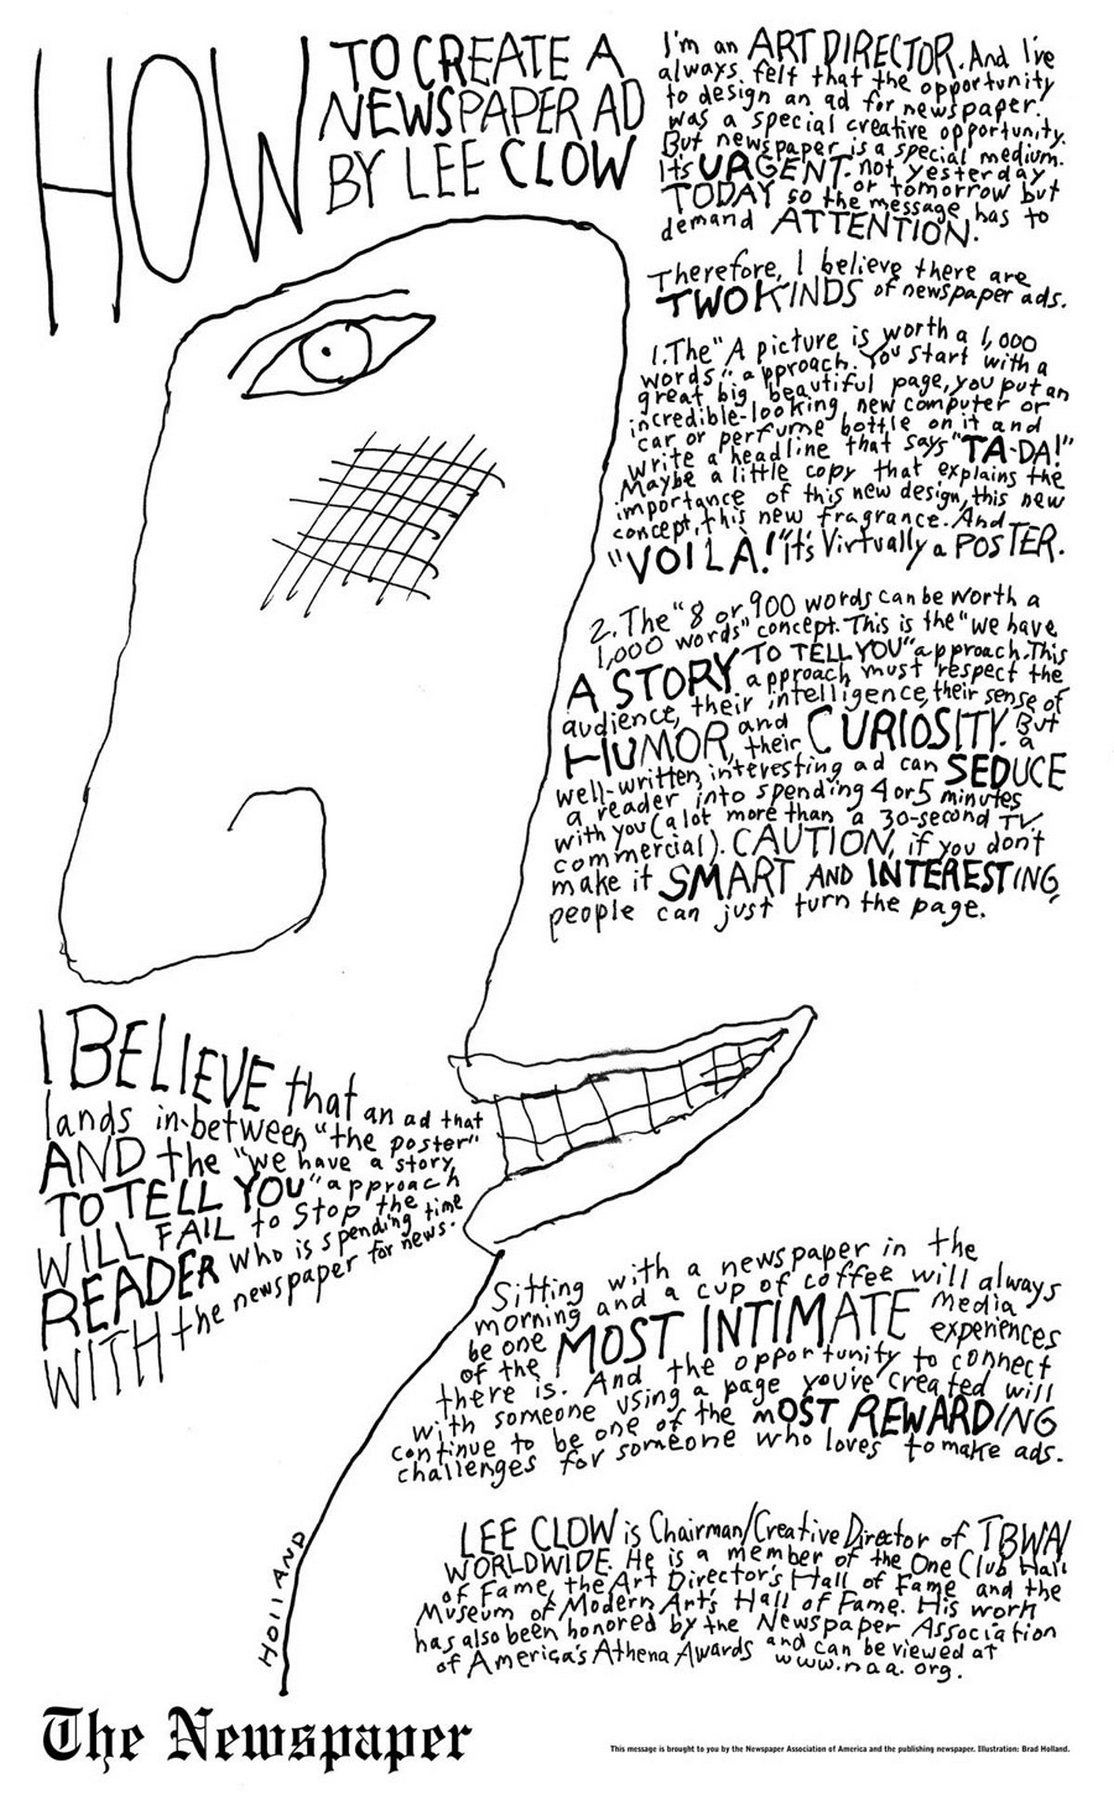 HOW
TO CREATE A
NEWSPAPER AD
BY LEE CLOW
I'm an ART DIRECTOR. And I've
always felt that the opportunity
to design an ad for newspaper
was a special creative opportunity.
But newspaper is a special medium.
It's URGENT. not yesterday
or tomorrow but
TODAY so the message has to
demand ATTENTION.
Therefore, I believe there are
TWO KINDS of newspaper ads.
1. The "A picture is worth a 1,000
words" approach. You start with a
great big beautiful page, you put an
incredible-looking new computer or
car or perfume bottle on it and
write a headline that says "TA-DA!"
Maybe a little copy that explains the
importance of this new design, this new
concept, this new fragrance. And
"VOILÀ!" It's Virtually a POSTER.
2. The "8 or 900 words can be worth a
1,000 words" concept. This is the "we have
A STORY TO TELL YOU" approach. This
approach must respect the
audience, their intelligence, their sense of
HUMOR, and their CURIOSITY. But a
well-written, interesting ad can SEDUCE
a reader into spending 4 or 5 minutes
with you (a lot more than a 30-second TV
commercial). CAUTION, if you don't
make it SMART AND INTERESTING,
people can just turn the page.
I BELIEVE that an ad that
lands in-between "the poster"
AND the "we have a story
TO TELL YOU" approach
WILL FAIL to stop the
READER who is spending time
WITH the newspaper for news.
Sitting with a newspaper in the
morning and a cup of coffee will always
be one of the MOST INTIMATE media experiences
there is. And the opportunity to connect
with someone using a page you've created will
continue to be one of the MOST REWARDING
challenges for someone who loves to make ads.
LEE CLOW is Chairman/Creative Director of TBWA/
WORLDWIDE. He is a member of the One Club Hall
of Fame, the Art Director's Hall of Fame and the
Museum of Modern Art's Hall of Fame. His work
has also been honored by the Newspaper Association
of America's Athena Awards and can be viewed at
www.naa.org.
HOLLAND
The Newspaper
This message is brought to you by the Newspaper Association of America and the publishing newspaper. Illustration: Brad Holland.